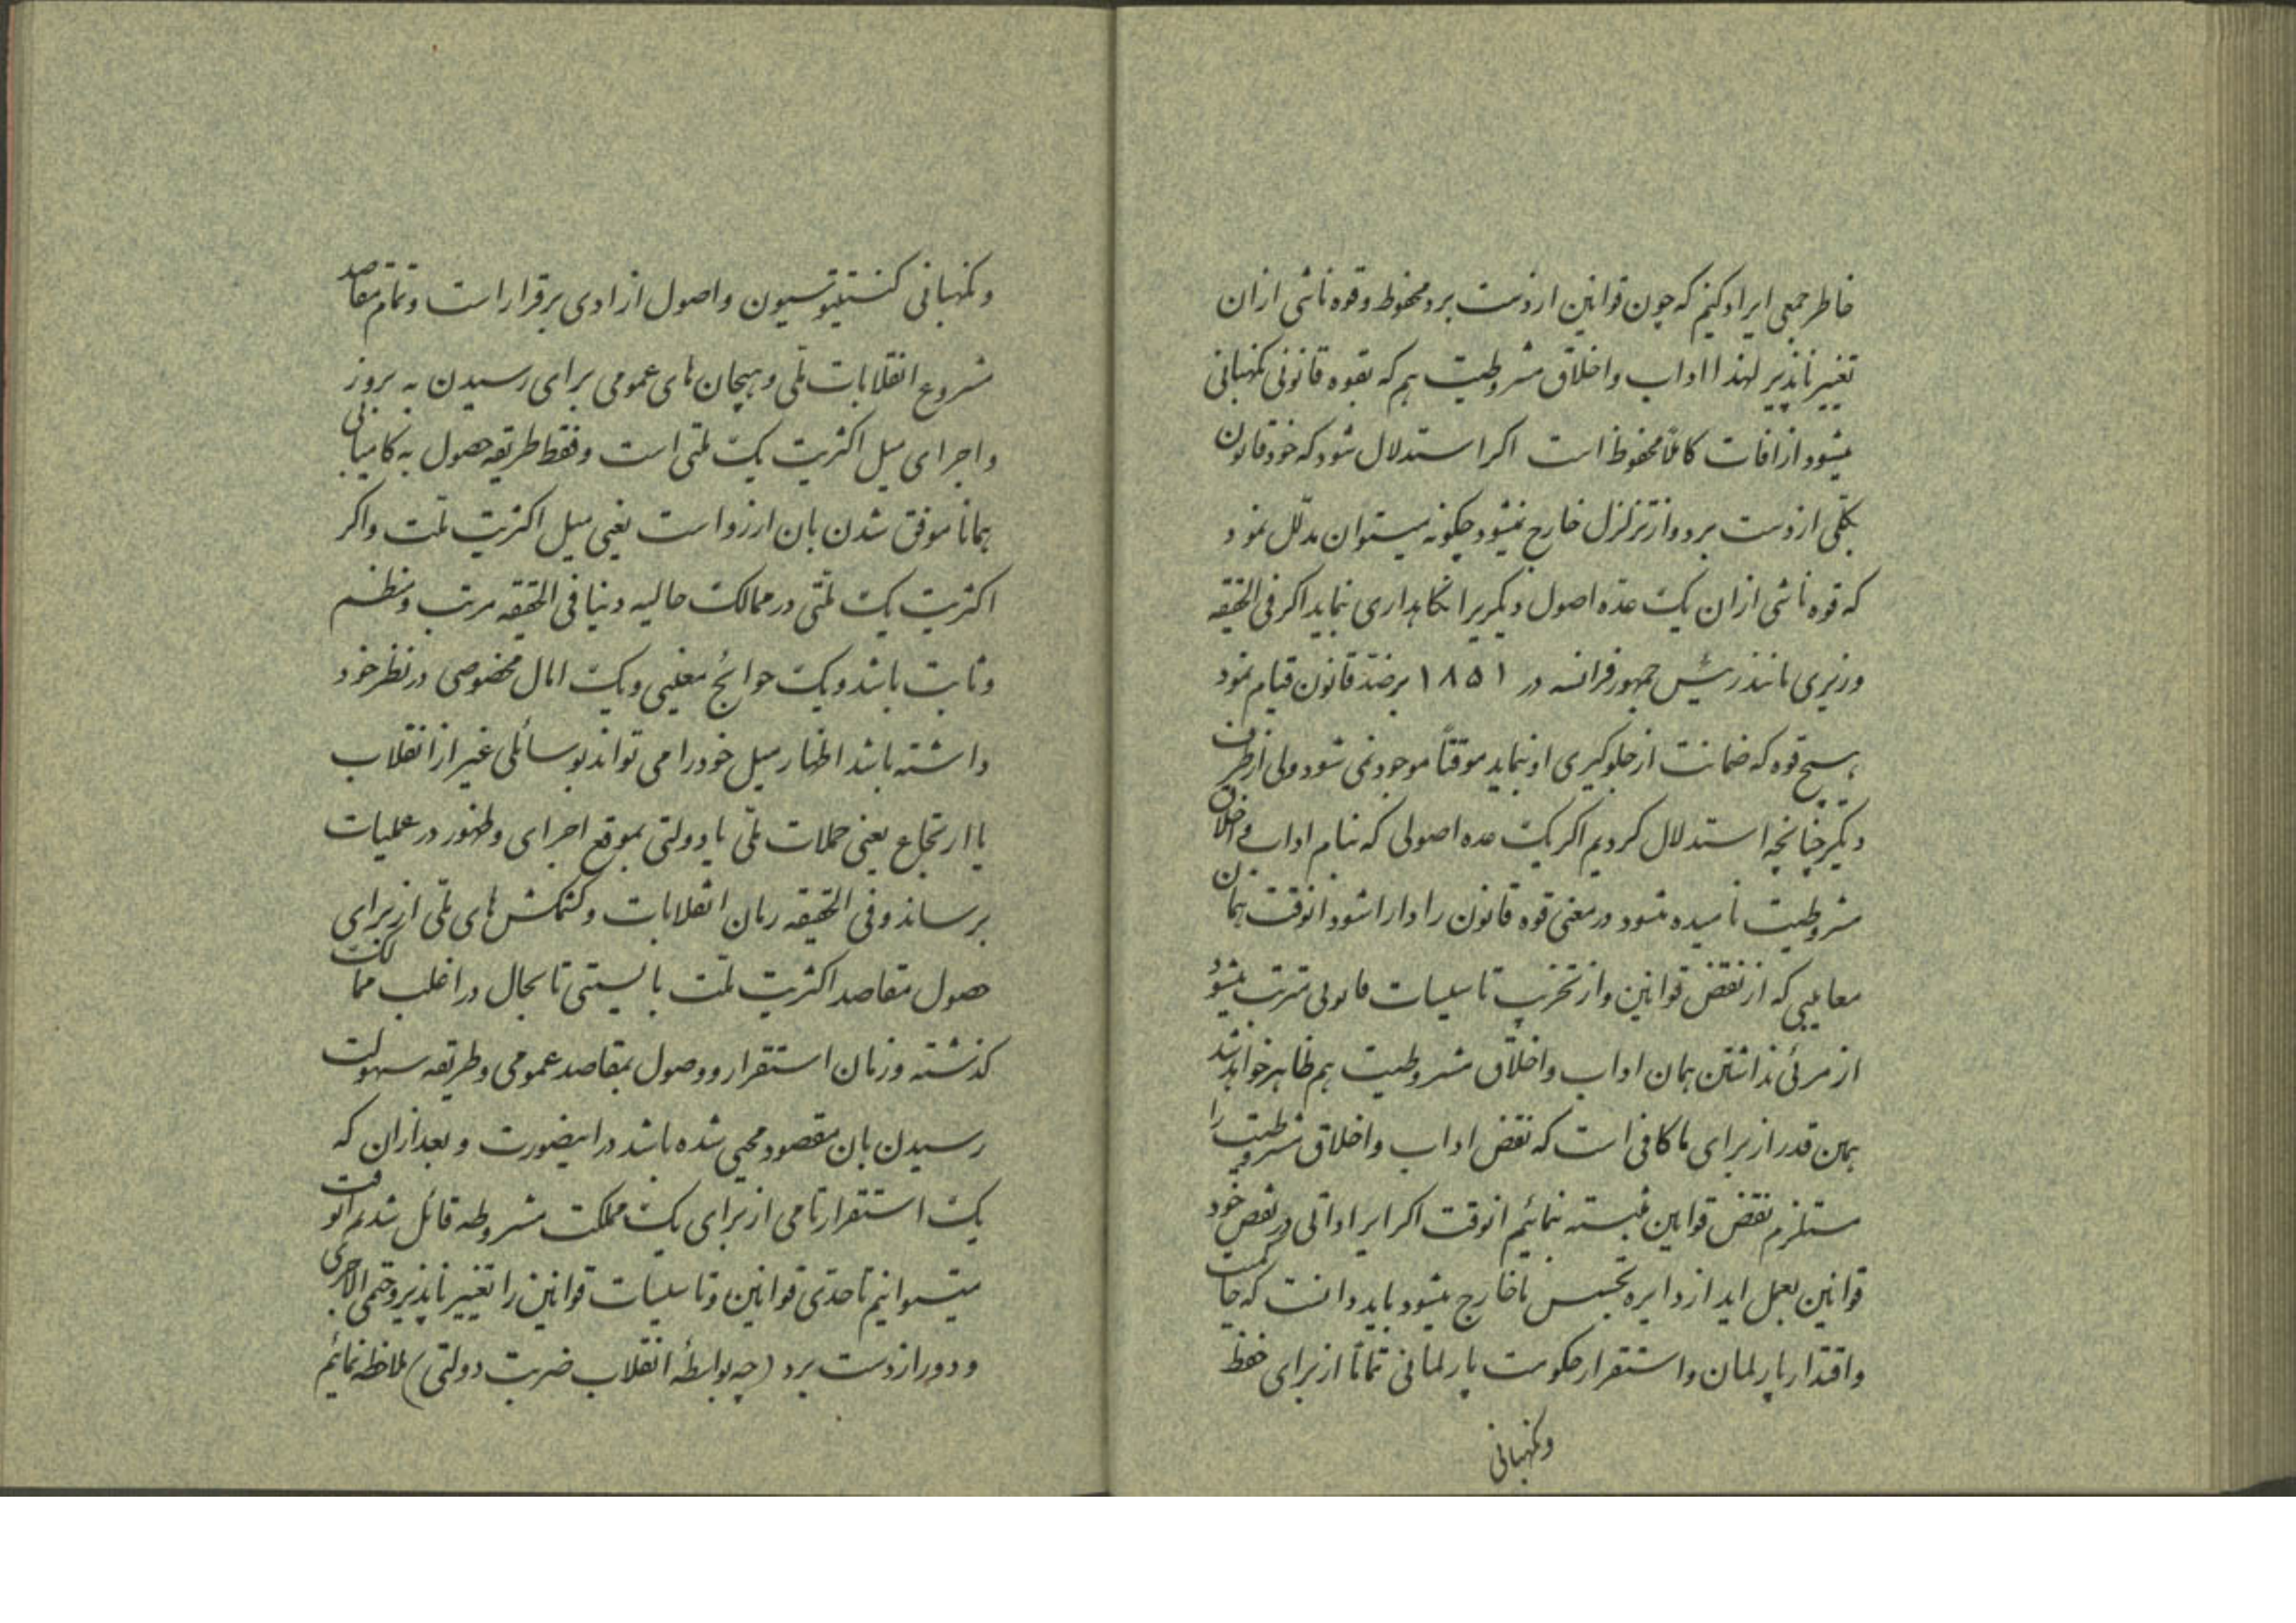 خاطر جمعی ایراد کنیم که چون قوانین از دست برد محفوظ و قوه ناشی از ان
تغییر ناپذیر لهذا اداب و اخلاق مشروطیت هم که بقوه قانونی نگهبانی
میشود از افات کاملاً محفوظ است اکر استدلال شود که خود قانون
بکلی از دست برد و از تزلزل خارج نمیشود چگونه میتوان مدلل نمود
که قوه ناشی از ان یک عده اصول دیگریرا نگاهداری نماید اکر فی الحقیقه
وزیری مانند رئیس جمهور فرانسه در ۱۸۵۱ بر ضد قانون قیام نمود
هیچ قوه که ضمانت از جلوگیری او نماید موقتاً موجود نمی شود ولی از طرف
دیگر چنانچه استدلال کردیم اکر یک عده اصولی که بنام اداب و اخلاق
مشروطیت نامیده میشود در معنی قوه قانون را دارا شود انوقت همان
معایبی که از نقض قوانین و از تخریب تاسیسات قانونی مترتب میشود
از مرئی نداشتن همان اداب و اخلاق مشروطیت هم ظاهر خواهد شد
همین قدر از برای ما کافی است که نقض اداب و اخلاق مشروطیت را
مستلزم نقض قوانین مثبته نمائیم انوقت اکر ایراداتی در نقض خود
قوانین بعمل اید از دایره تجسس ما خارج میشود باید دانست که حاکمیت
و اقتدار پارلمان و استقرار حکومت پارلمانی تماماً از برای حفظ
و نگهبانی
و نگهبانی کنستیتوسیون و اصول ازادی برقرار است و تمام مقاصد
مشروع انقلابات ملی و هیجان های عمومی برای رسیدن به بروز
و اجرای میل اکثریت یک ملتی است و فقط طریقه حصول به کامیابی
همانا موفق شدن بان ارزو است یعنی میل اکثریت ملت و اکر
اکثریت یک ملتی در ممالک حالیه دنیا فی الحقیقه مرتب و منظم
و ثابت باشد و یک حوائج معینی و یک امال مخصوصی در نظر خود
داشته باشد اظهار میل خود را می تواند بوسائلی غیر از انقلاب
یا ارتجاع یعنی حملات ملی یا دولتی بموقع اجرای و ظهور در عملیات
برساند و فی الحقیقه زمان انقلابات و کشمکش های ملی از برای
حصول مقاصد اکثریت ملت بایستی تا بحال در اغلب ممالک
کذشته و زمان استقرار و وصول بمقاصد عمومی و طریقه سهولت
رسیدن بان مقصود محیی شده باشد در اینصورت و بعد از ان که
یک استقرار تامی از برای یک مملکت مشروطه قائل شدیم انوقت
میتوانیم تا حدی قوانین و تاسیسات قوانین را تغییر ناپذیر و حتمی الاجری
و دور از دست برد (چه بواسطهٔ انقلاب ضربت دولتی) ملاحظه نمائیم